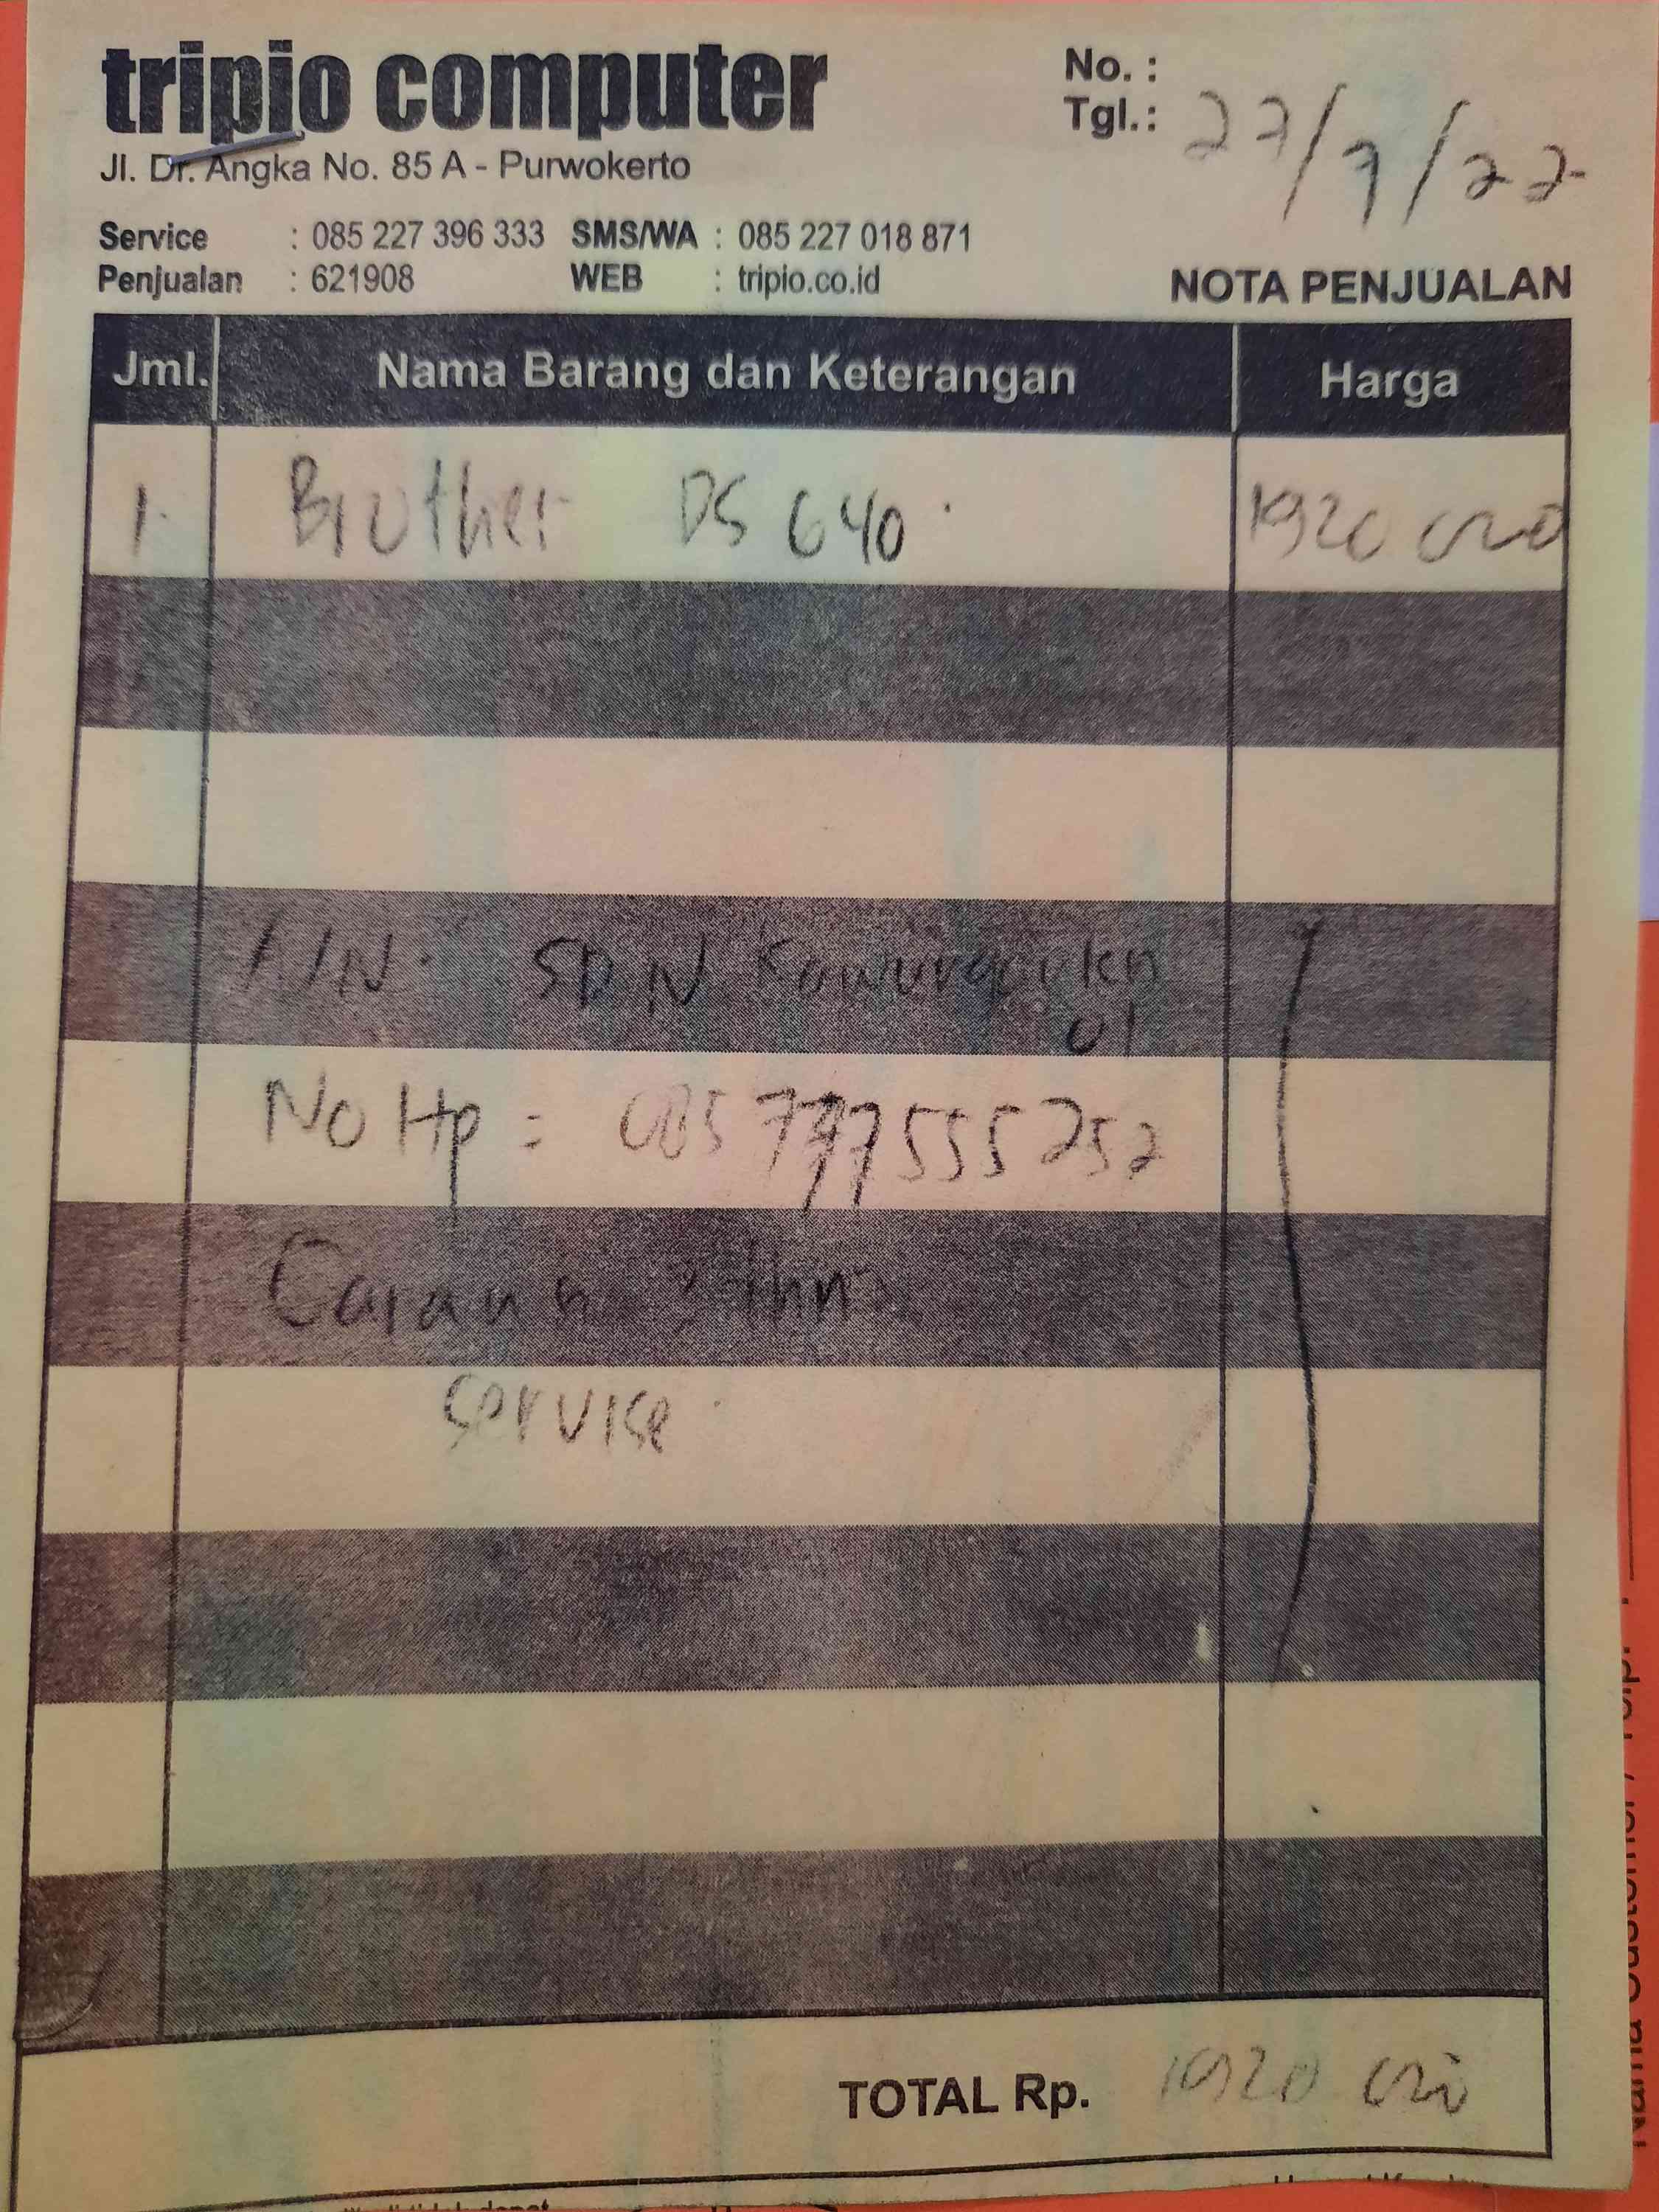 tripio computer
Jl. Dr. Angka No. 85 A - Purwokerto
No. :
Tgl.: 27/7/22
Service : 085 227 396 333 SMS/WA : 085 227 018 871
Penjualan : 621908 WEB : tripio.co.id
NOTA PENJUALAN
Jml. Nama Barang dan Keterangan Harga
1. Brother DS 640. 1920 000
A/N. SDN
01
No Hp = 085 777 555 252
3 thn
service.
TOTAL Rp. 1920 000
Nama Customer / Telp. :